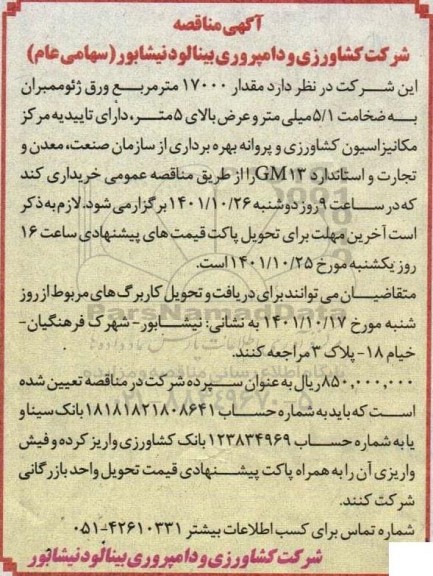 آگهی مناقصه
شرکت کشاورزی و دامپروری بینالود نیشابور (سهامی عام)
این شرکت در نظر دارد مقدار ۱۷۰۰۰ مترمربع ورق ژئوممبران
به ضخامت ۵/۱ میلی متر و عرض بالای ۵ متر، دارای تاییدیه مرکز
مکانیزاسیون کشاورزی و پروانه بهره برداری از سازمان صنعت، معدن و
تجارت و استاندارد GM۱۳ را از طریق مناقصه عمومی خریداری کند
که در ساعت ۹ روز دوشنبه ۱۴۰۱/۱۰/۲۶ برگزار می شود. لازم به ذکر
است آخرین مهلت برای تحویل پاکت قیمت های پیشنهادی ساعت ۱۶
روز یکشنبه مورخ ۱۴۰۱/۱۰/۲۵ است.
متقاضیان می توانند برای دریافت و تحویل کاربرگ های مربوط از روز
شنبه مورخ ۱۴۰۱/۱۰/۱۷ به نشانی: نیشابور- شهرک فرهنگیان-
خیام ۱۸- پلاک ۳ مراجعه کنند.
۸۵۰,۰۰۰,۰۰۰ ریال به عنوان سپرده شرکت در مناقصه تعیین شده
است که باید به شماره حساب ۱۸۱۸۱۸۲۱۸۰۸۶۴۱ بانک سینا و
یا به شماره حساب ۱۲۳۸۳۴۹۶۹ بانک کشاورزی واریز کرده و فیش
واریزی آن را به همراه پاکت پیشنهادی قیمت تحویل واحد بازرگانی
شرکت کنند.
شماره تماس برای کسب اطلاعات بیشتر ۴۲۶۱۰۳۳۱-۰۵۱
شرکت کشاورزی و دامپروری بینالود نیشابور
ParsNamadData
پایگاه اطلاع رسانی مناقصه و مزایده
۰۲۱-۸۸۳۴۹۶۷۰-۵